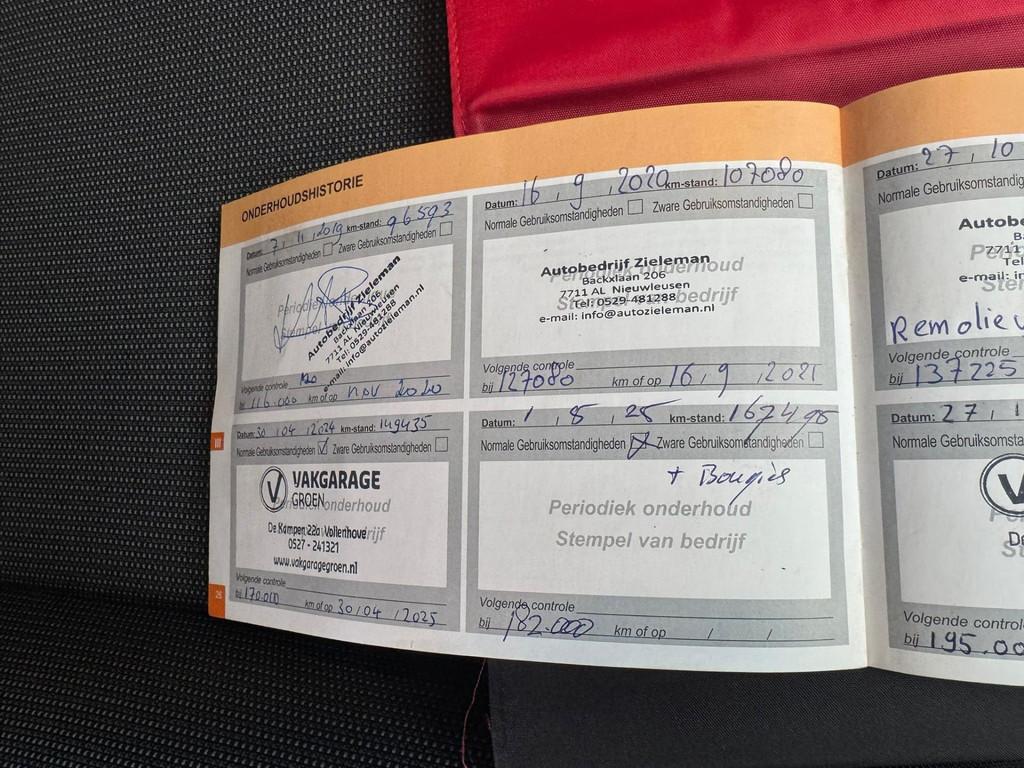 ONDERHOUDSHISTORIE
Datum: 7, 11, 2019 km-stand: 96593
Normale Gebruiksomstandigheden Zware Gebruiksomstandigheden
Periodiek
Stempel
Autobedrijf Zieleman
Backxlaan 206
7711 AL Nieuwleusen
Tel: 0529-481288
e-mail: info@autozieleman.nl
Volgende controle
bij 116.000 km of op nov 2020
Datum: 16, 9, 2020 km-stand: 107080
Normale Gebruiksomstandigheden Zware Gebruiksomstandigheden
Periodiek onderhoud
Stempel van bedrijf
Autobedrijf Zieleman
Backxlaan 206
7711 AL Nieuwleusen
Tel: 0529-481288
e-mail: info@autozieleman.nl
Volgende controle
bij 127080 km of op 16, 9, 2021
Datum: 30, 04, 2024 km-stand: 149435
Normale Gebruiksomstandigheden Zware Gebruiksomstandigheden
Periodiek onderhoud
VAKGARAGE
GROEN
De Kampen 22a Vollenhove
0527 - 241321
www.vakgaragegroen.nl
Volgende controle
bij 170.000 km of op 30, 04, 2025
Datum: 1, 8, 25 km-stand: 167495
Normale Gebruiksomstandigheden Zware Gebruiksomstandigheden
+ Bougies
Periodiek onderhoud
Stempel van bedrijf
Volgende controle
bij 182.000 km of op / /
26
Datum: 27, 10
Normale Gebruiksomstandig
Autobed
7711
Tel
e-mail: in
Remolie
Volgende controle
bij 137225
Datum: 27, 1
Normale Gebruiksomsta
De
Volgende control
bij 195.00